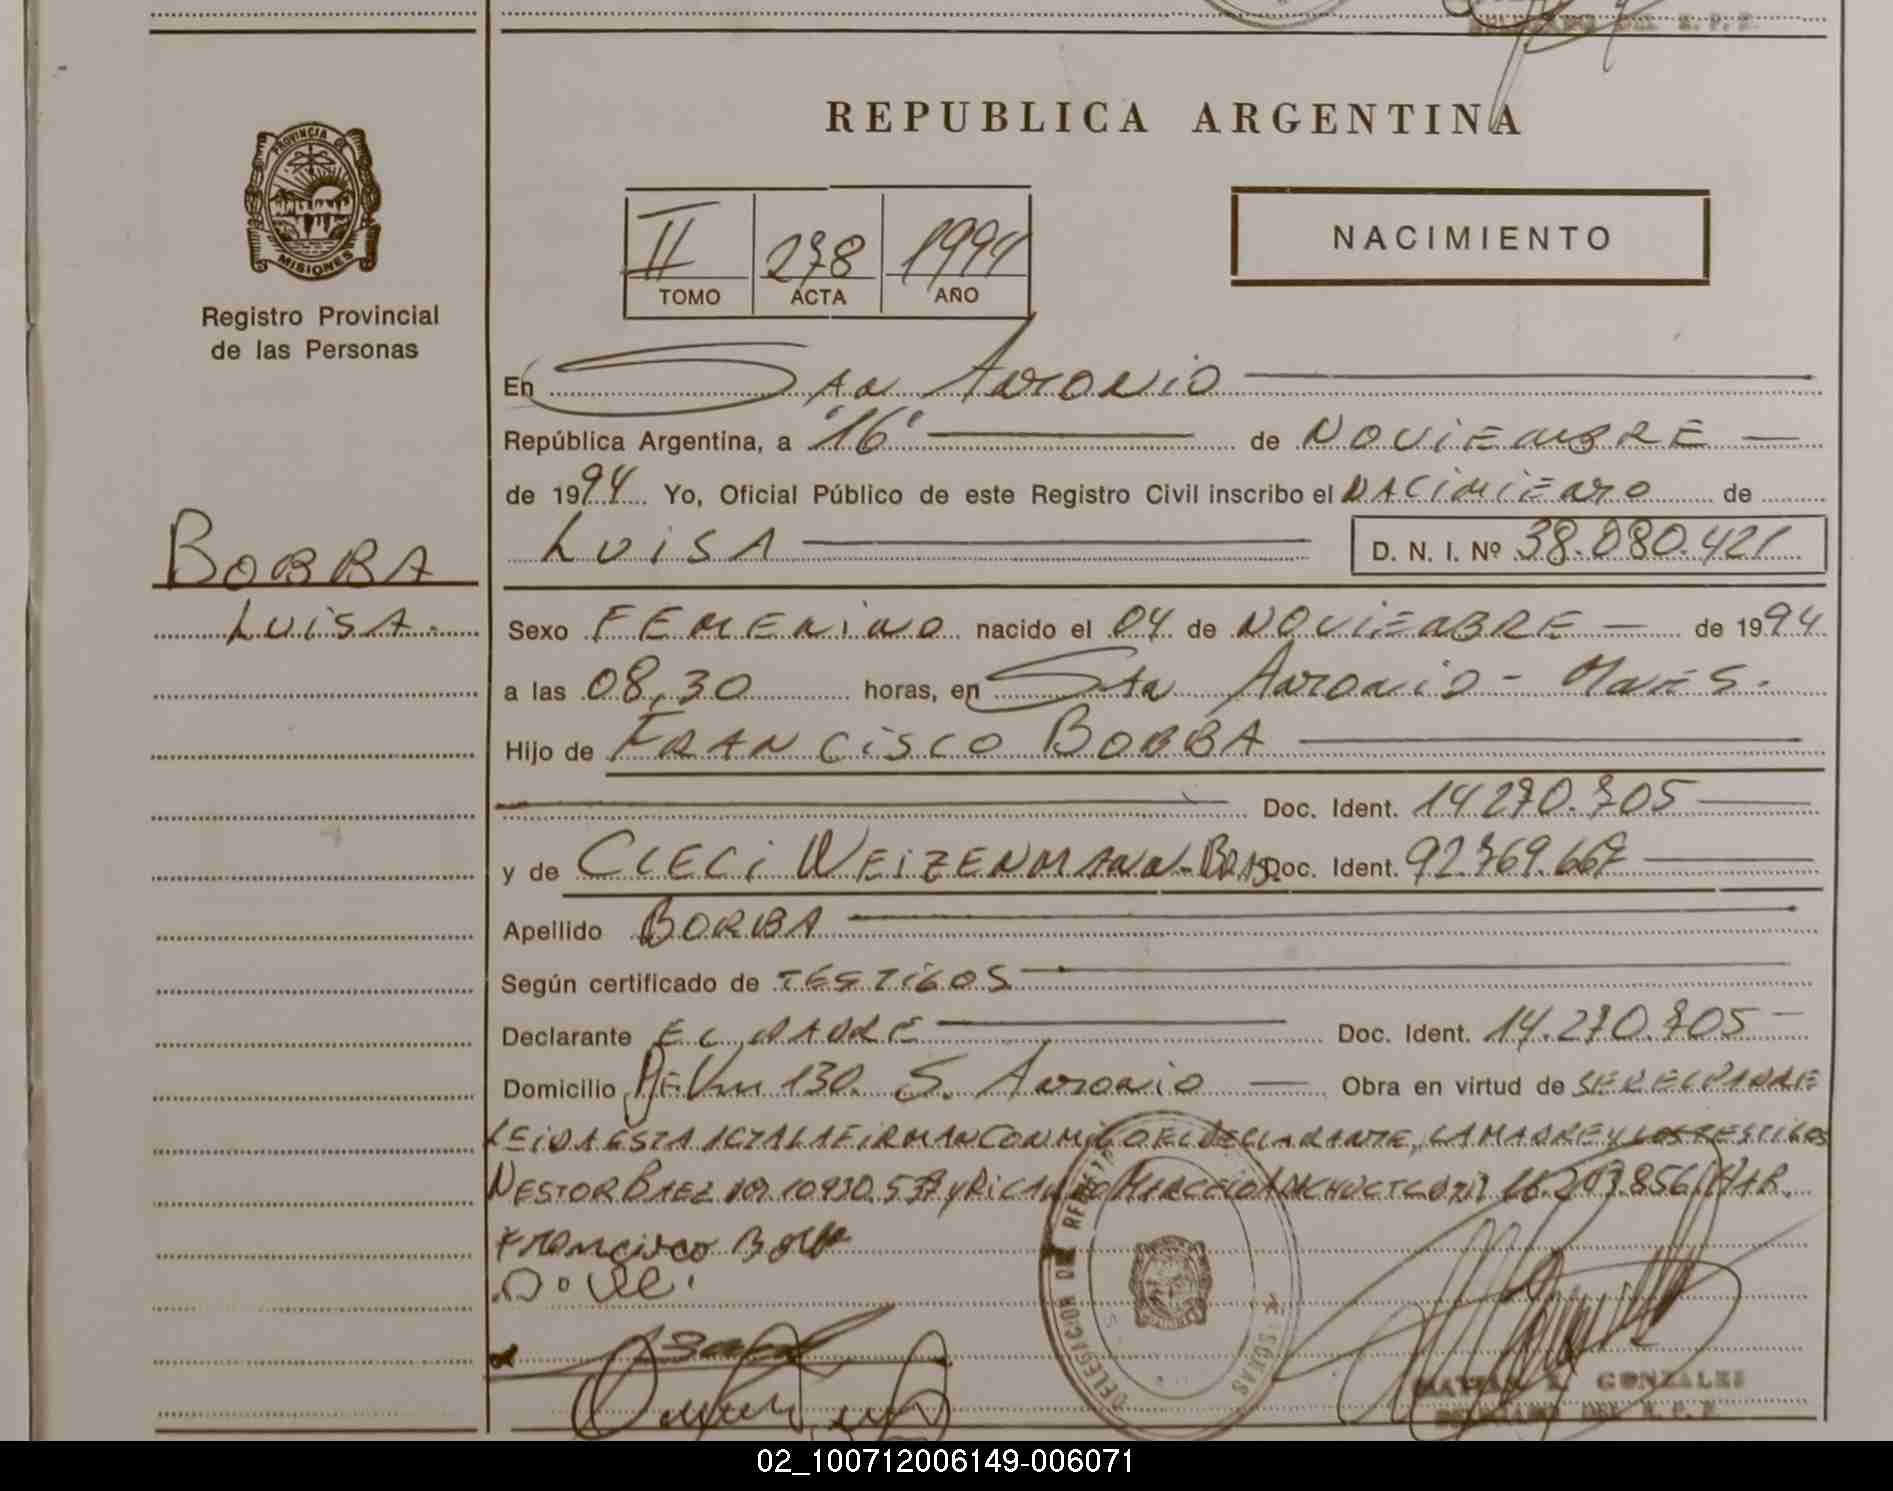 REPUBLICA ARGENTINA
PROVINCIA DE
MISIONES
Registro Provincial
de las Personas
II 278 1994
TOMO ACTA AÑO
NACIMIENTO
En San Antonio
República Argentina, a "16" de NOVIEMBRE
de 1994 Yo, Oficial Público de este Registro Civil inscribo el NACIMIENTO de
LUISA D. N. I. Nº 38.080.421
BORBA
LUISA.
Sexo FEMENINO nacido el 04 de NOVIEMBRE de 1994
a las 08,30 horas, en San Antonio - Mnes.
Hijo de FRANCISCO BORBA
Doc. Ident. 14270.705
y de CLECI WEIZENMANN - BRAS. Doc. Ident. 92.769.667
Apellido BORBA
Según certificado de TESTIGOS
Declarante EL PADRE Doc. Ident. 14.270.705
Domicilio Km 130. S. Antonio Obra en virtud de SER EL PADRE
LEIDA ESTA ACTA LA FIRMAN CONMIGO EL DECLARANTE, LA MADRE Y LOS TESTIGOS
NESTOR BAEZ DNI 10930.537 y RICARDO MARCELO DNI 16.207.856
Francisco Borba
DELEGACION DE REGISTRO PERSONAS
GONZALES
DELEGADO DEL R. P. P.
02_100712006149-006071